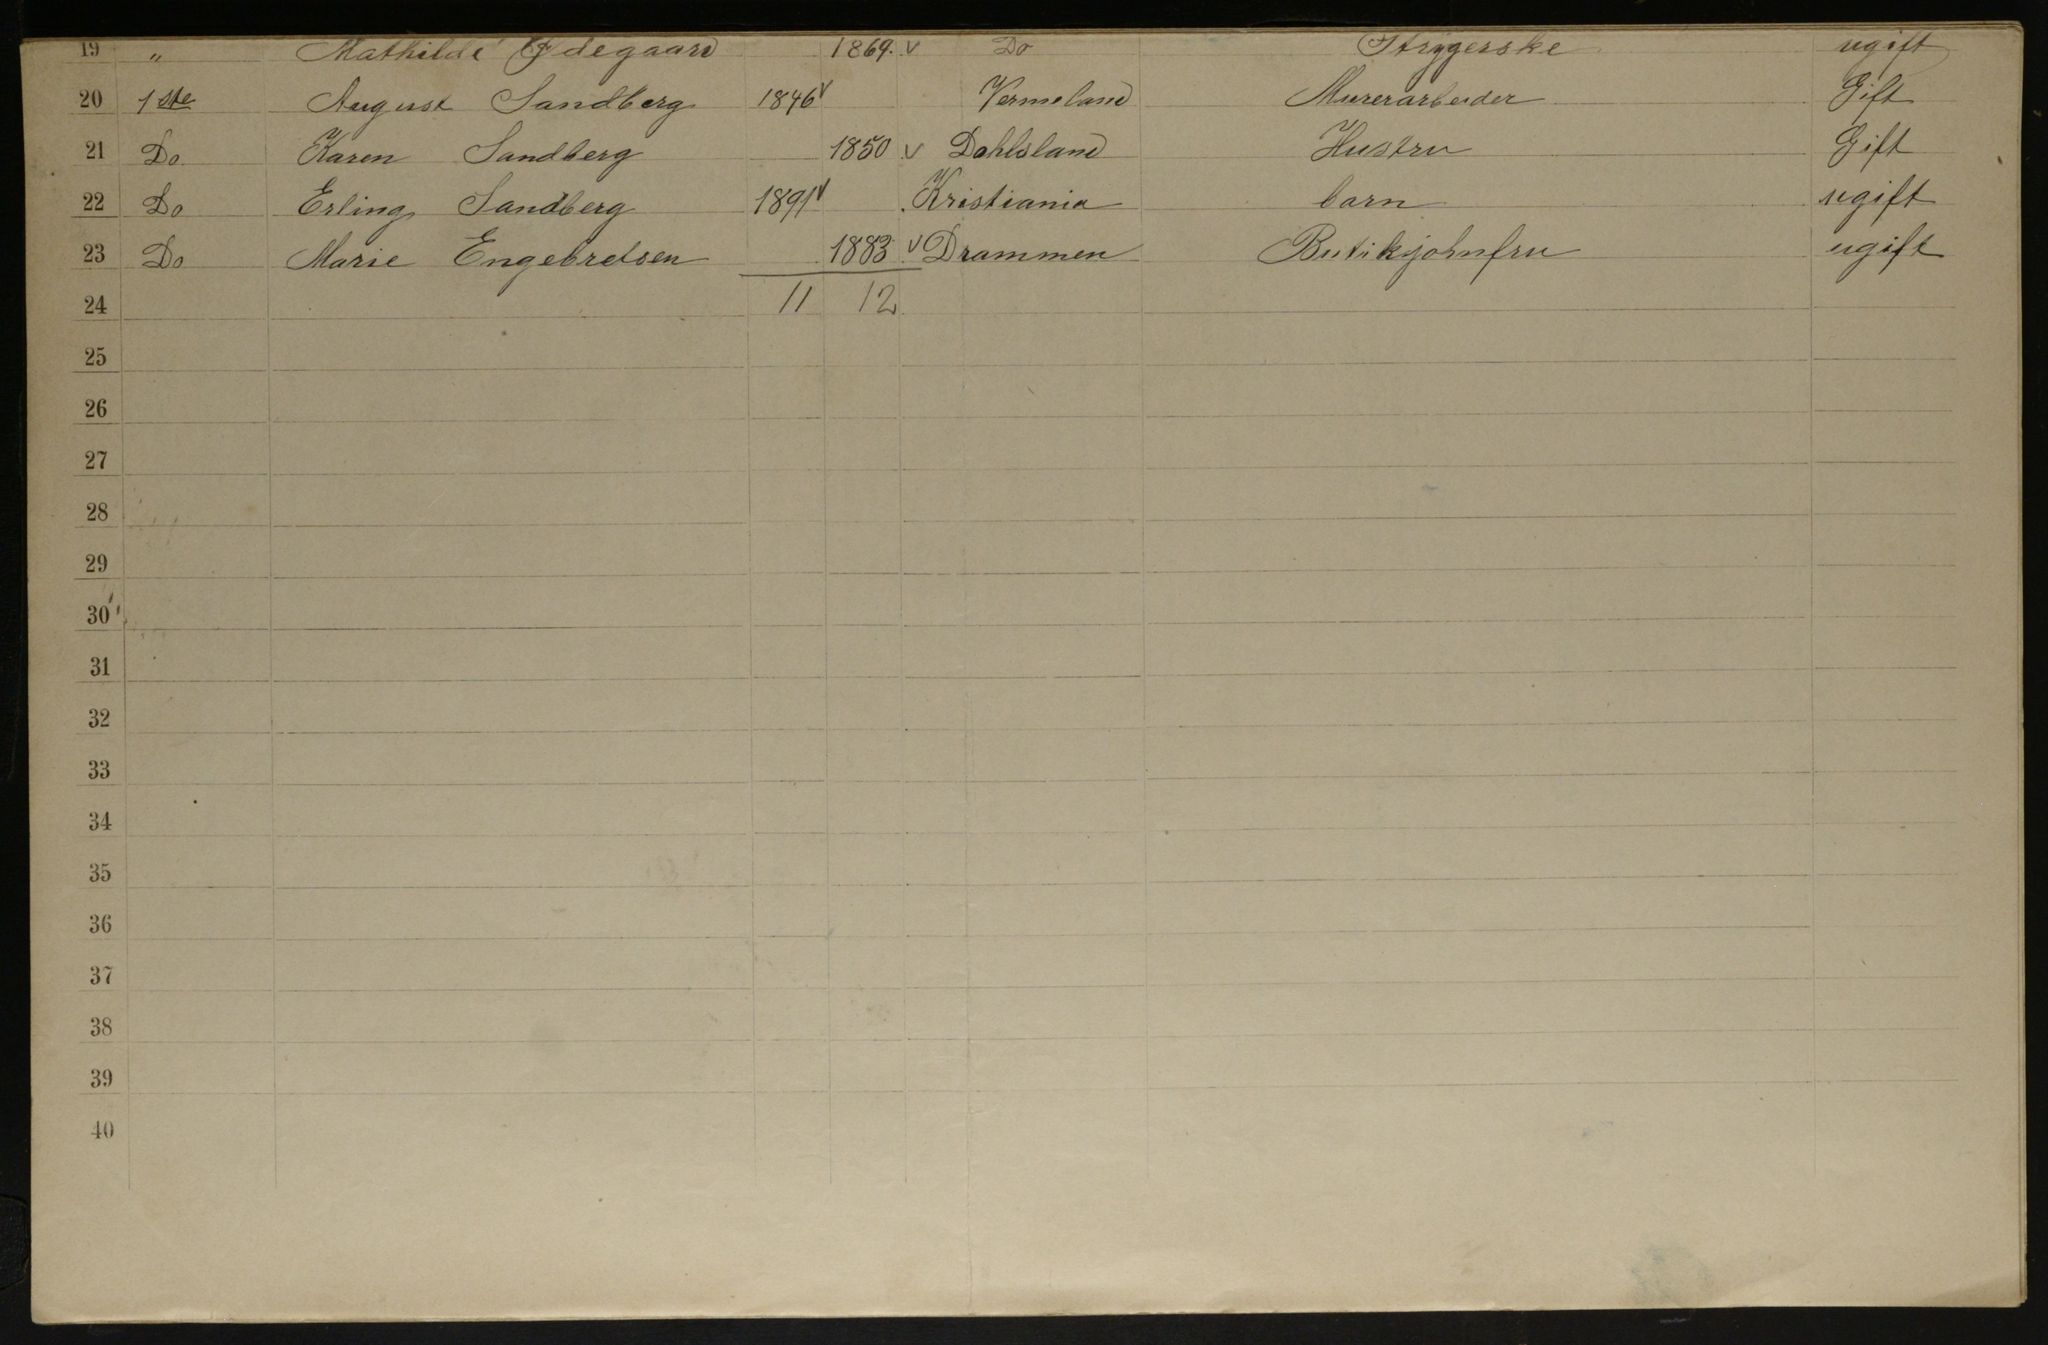 19 " Mathilde Ødegaard 1869. v Do Strygerske ugift
20 1ste August Sandberg 1846 v Vermeland Murerarbeider Gift
21 Do Karen Sandberg 1850 v Dahlsland Hustru Gift
22 Do Erling Sandberg 1891 v Kristiania barn ugift
23 Do Marie Engebretsen 1883 v Drammen Butikjohmfru ugift
24 11 12
25
26
27
28
29
30
31
32
33
34
35
36
37
38
39
40